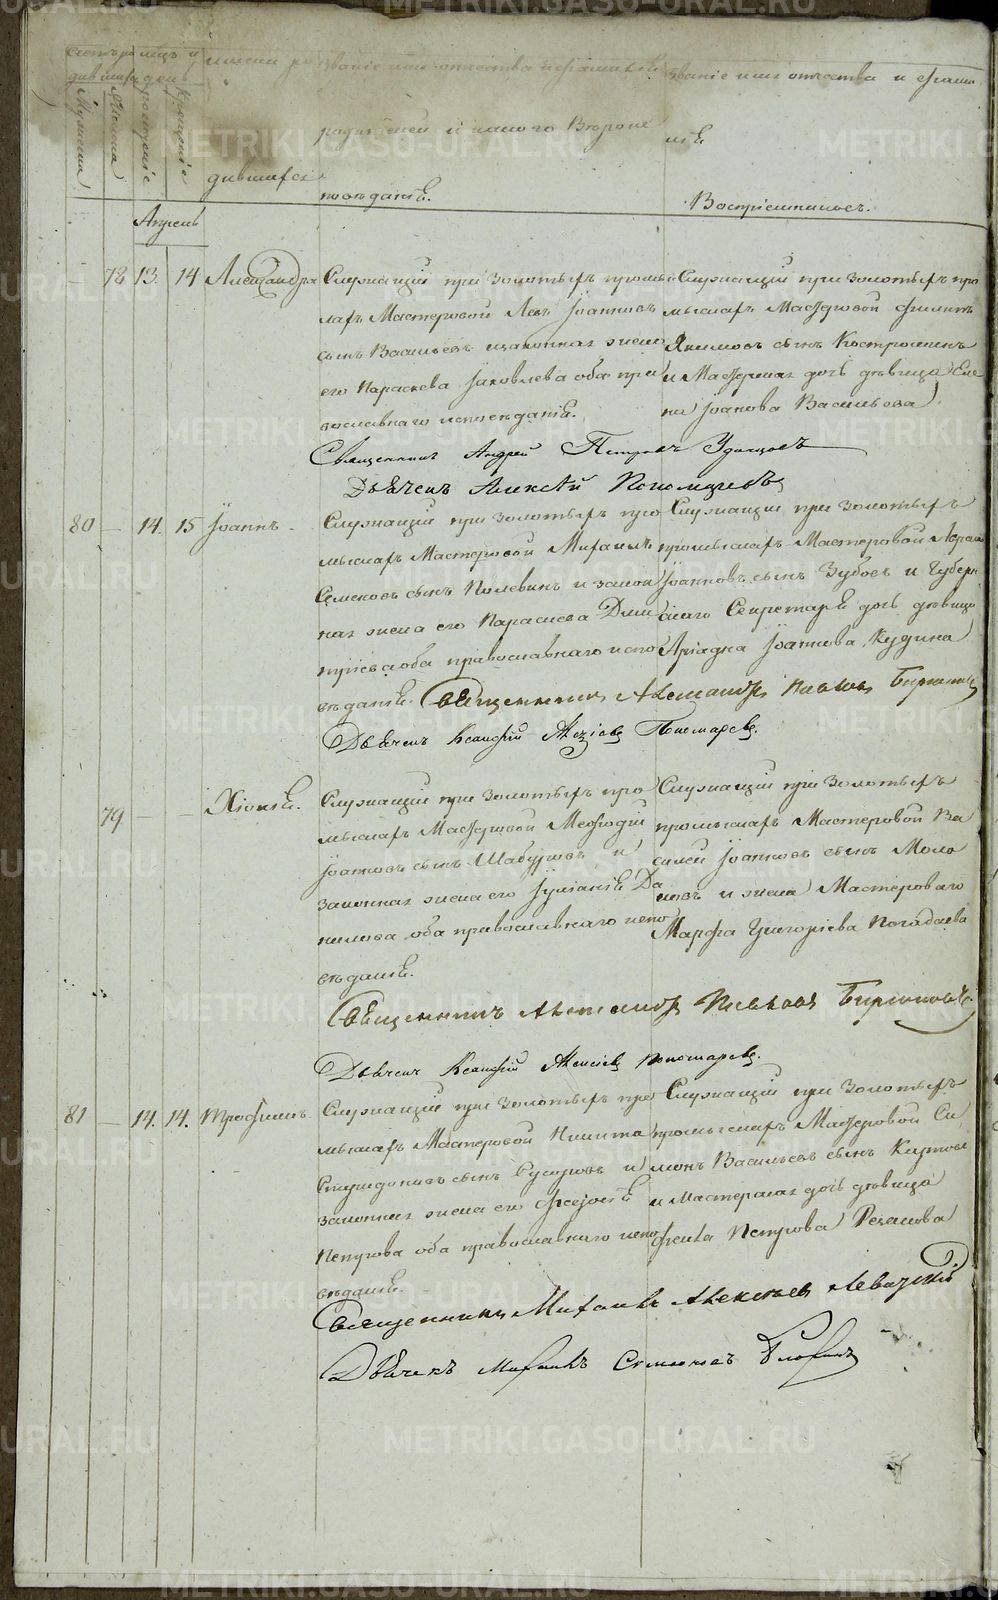 METRIKI.GASO-URAL.RU
Счетъ ро
дившихся
мѣсяцъ и
день
имена ро
дившихся
Мужеска
Женска
рожденіе
крещеніе
званіе имя отчество и фамилія
родителей и какого Вѣроис
повѣданіе.
званіе имя отчество и фами
ліе
Воспріемниковъ.
Апрель
78 13. 14 Александра
Служащій при Золотыхъ промыс
лахъ Мастеровой Левъ Іоанновъ
сынъ Васильевъ изаконная жена
его Параскева Іаковлева оба пра
вославнаго исповѣданіе.
Служащій при Золотыхъ про
мыслахъ Мастеровой Филипъ
Якимовъ сынъ Костроминъ
и Мастерская дочь дѣвица Еле
на Іоанова Васильева
Священникъ Андрей Петровъ Удинцовъ
Дьячекъ Алексѣй Пономаревъ
80 — 14. 15 Іоаннъ
Служащій при Золотыхъ про
мыслахъ Мастеровой Михаилъ
Семеновъ сынъ Полевинъ и закон
ная жена его Параскева Дми
тріева оба православнаго испо
вѣданіе.
Служащій при Золотыхъ
промыслахъ Мастеровой Абрам
Іоанновъ сынъ Зубовъ и Губерн
скаго Секретарѣ дочь дѣвица
Аріадна Іоаннова Кудрина
Священникъ Александръ Павловъ Бирюковъ
Дьячекъ Ксанфій Алексіевъ Пономаревъ.
79 — — Хіоніѣ.
Служащій при Золотыхъ про
мыслахъ Мастеровой Меѳодій
Іоанновъ сынъ Шабуровъ и
законная жена его Іуліаніѣ Да
нилова оба православнаго испо
вѣданіѣ.
Служащій при Золотыхъ
промыслахъ Мастеровой Ва
силей Іоанновъ сынъ Моло
ковъ и жена Мастероваго
Марфа Григоріева Погадаева
Священникъ Александръ Павловъ Бирюковъ.
Дьячекъ Ксанфій Алексіевъ Пономаревъ.
81 — 14. 14. Трофимъ
Служащій при Золотыхъ про
мыслахъ Мастеровой Никита
Спиридоновъ сынъ Сусоровъ и
законная жена его Ѳеодосіѣ
Петрова оба православнаго испо
вѣданіе.
Служащій при Золотыхъ
промыслахъ Мастеровой Си
монъ Васильевъ сынъ
и Мастерская дочь дѣвица
Фекла Петрова Резанова
Священникъ Михаилъ Алексѣевъ Левицкій
Дьячекъ Михаилъ Семеновъ